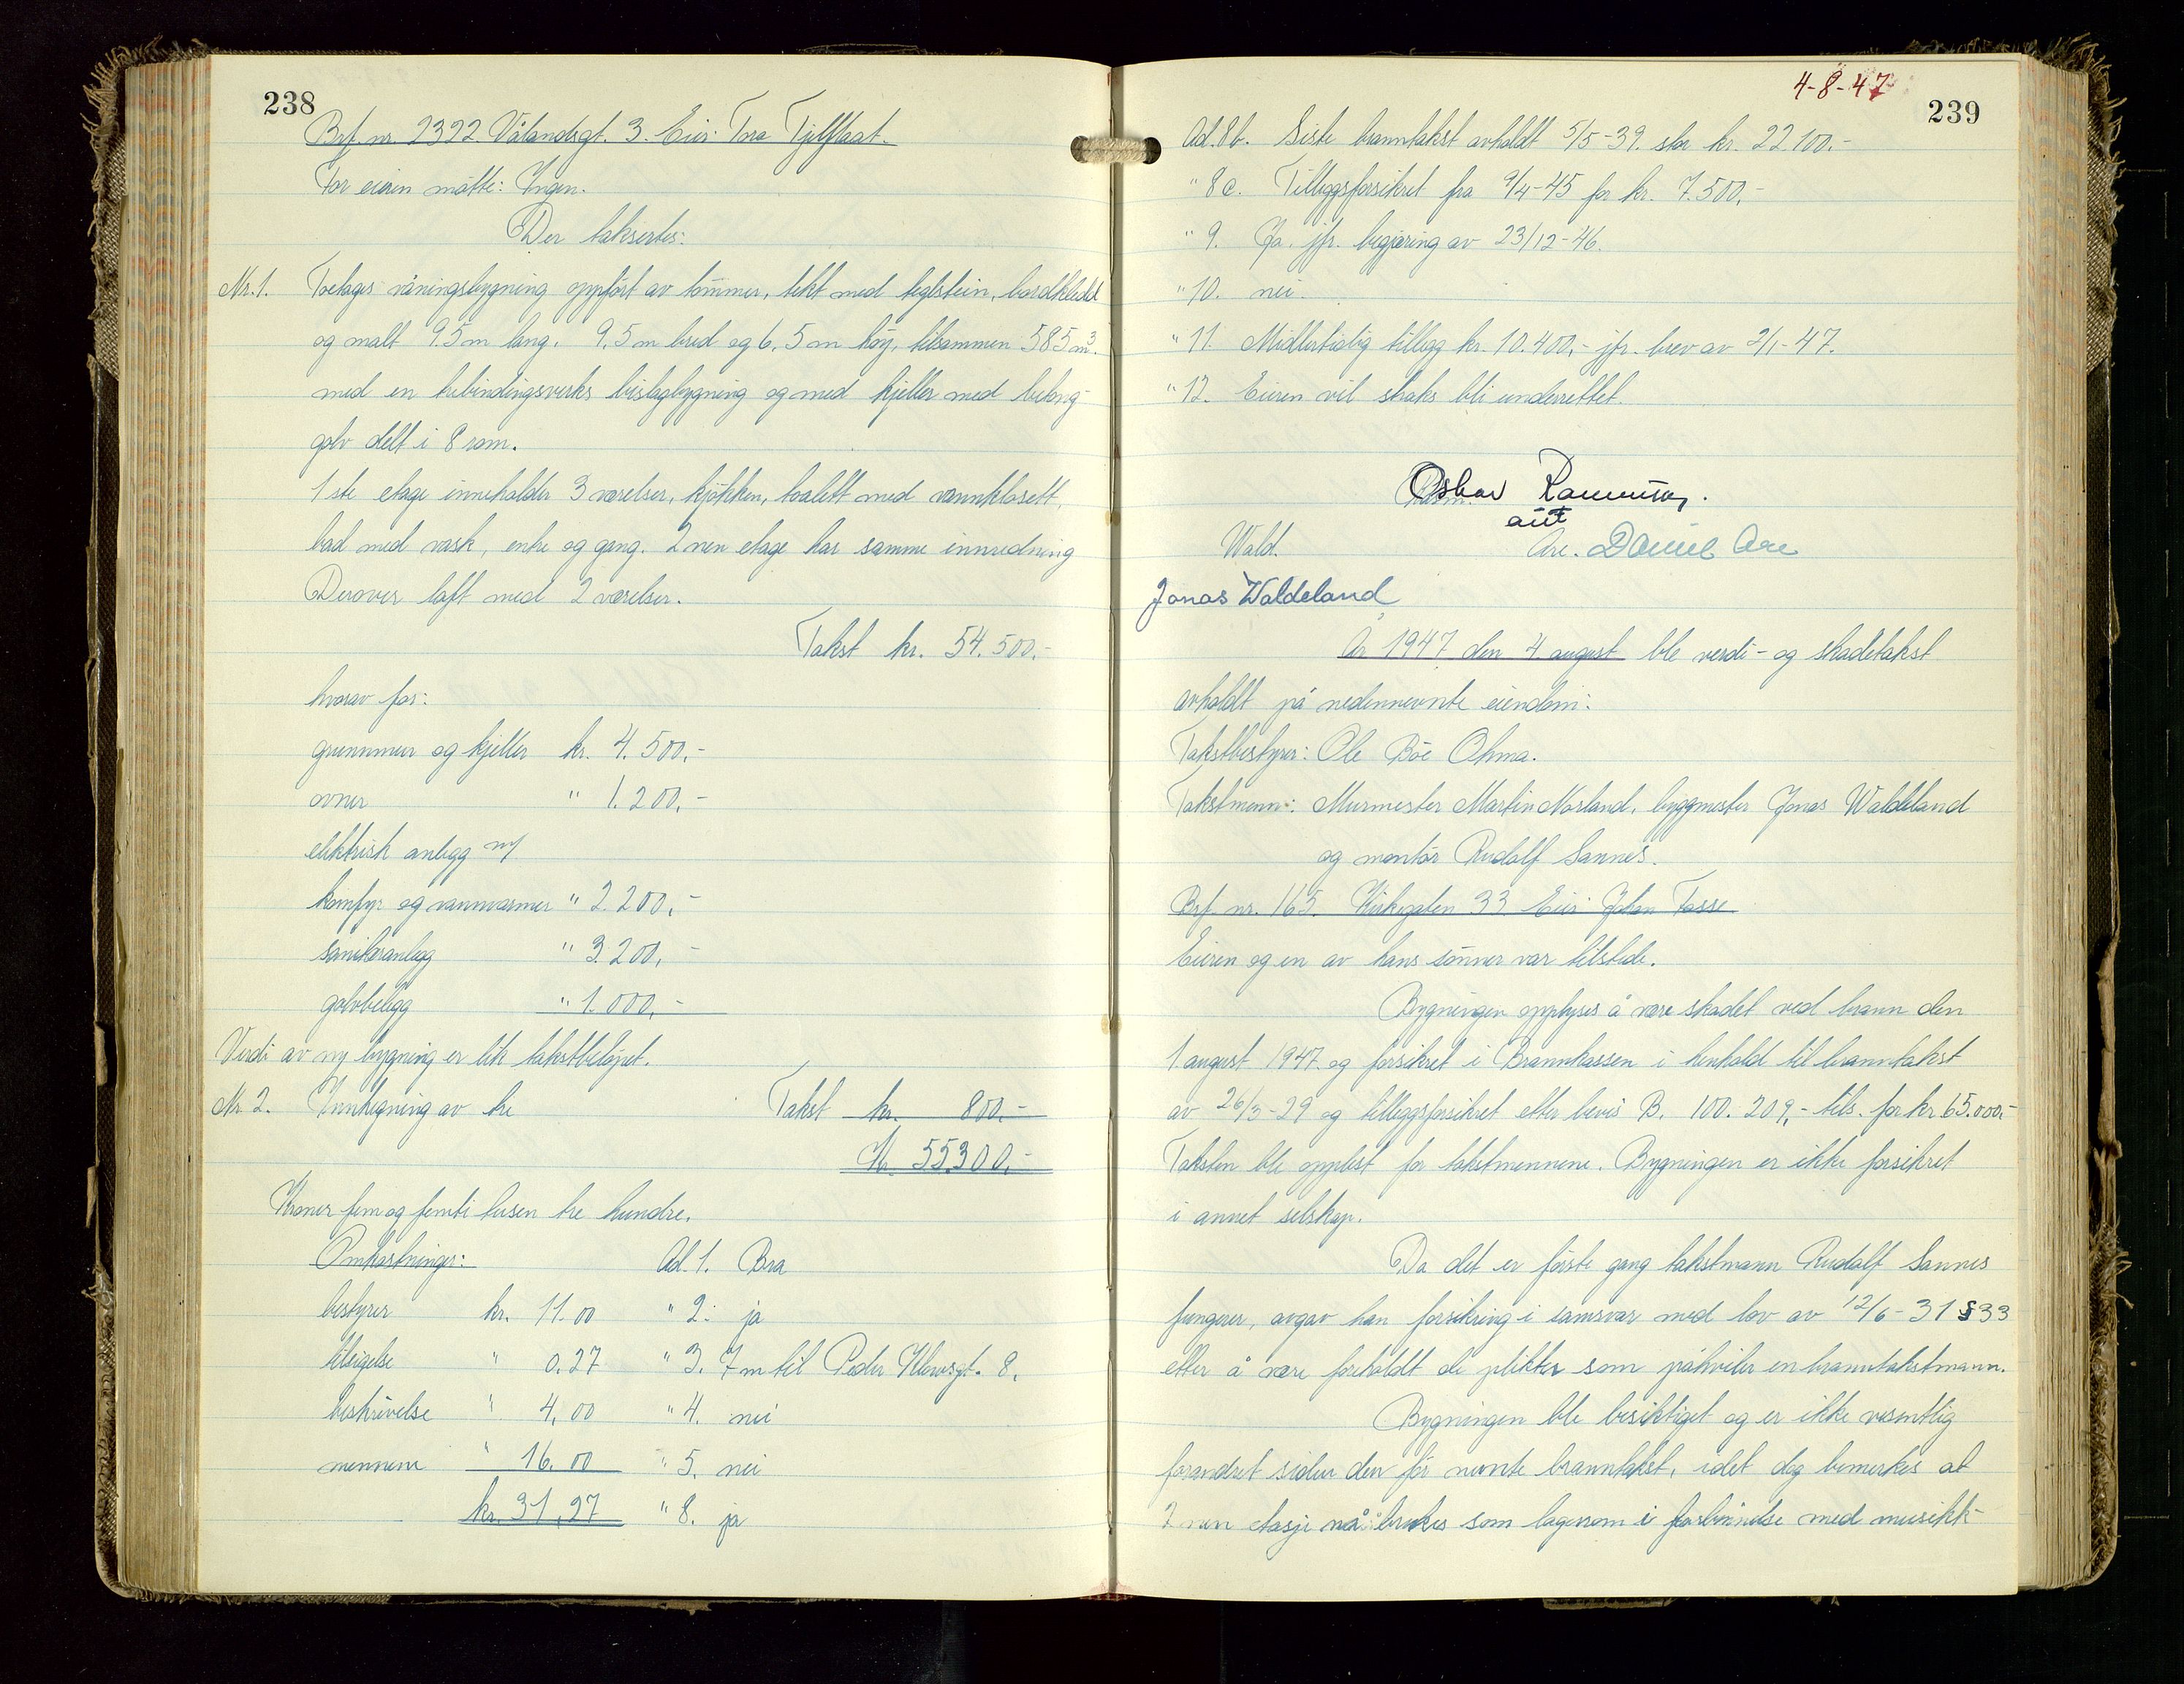 238
Brf. nr. 2322. Vålandsgt. 3. Eier: Tora Tjelflaat.
For eieren møtte: Ingen.
Der taksertes:
Nr. 1. Toetages våningsbygning oppført av tømmer, tekt med teglstein, bordkledd
og malt 9.5 m lang, 9,5 m bred og 6,5 m høy, tilsammen 585 m³.
med en bebindingsverks bislagbygning og med kjeller med betong-
golv delt i 8 rom.
1ste etage inneholder 3 værelser, kjøkken, toalett med vannklosett,
bad med vask, entre og gang. 2nen etage har samme innredning
Derover loft med 2 værelser.
Takst kr. 54.500.-
hvorav for:
grunnmur og kjeller kr. 4.500.-
ovner " 1.200.-
elektrisk anlegg m/
komfyr og vannvarmer " 2.200.-
sanitæranlegg " 3.200.-
golvbelegg " 1.000.-
Verdi av ny bygning er lik takstbeløpet.
Nr 2. Innhegning av tre Takst kr. 800.-
Kr. 55300.-
Kroner fem og femti tusen tre hundre.
Omkostninger: Ad. 1. Bra
bestyrer kr. 11.00 " 2. ja
tilsigelse " 0.27 " 3. 7 m til Peder Klowsgt. 8.
beskrivelse " 4,00 " 4. nei
mennene " 16.00 " 5. nei
kr. 31,27 " 8. ja
4-8-47
239
Ad. 8b. Siste branntakst avholdt 5/5-39. stor kr. 22100.-
" 8c. Tilleggsforsikret fra 9/4-45 for kr. 7.500.-
" 9. Ja. jfr. begjæring av 23/12-46.
" 10. nei.
" 11. Midlertidig tillegg kr. 10.400,- jfr. brev av 2/1-47.
" 12. Eieren vil straks bli underrettet.
Oskar
aut
Wald. Are. Daniel Are
Jonas Waldeland
År 1947 den 4 august ble verdi- og skadetakst
avholdt på nedennevnte eiendom:
Takstbestyrer: Ole Bøe Ohma.
Takstmenn: Murmester Martin Norland, byggmester Jonas Waldeland
og montør Rudolf Sannes.
Brf. nr. 165. Kirkegaten 33 Eier Johan Tasse
Eieren og en av hans sønner var tilstede.
Bygningen opplyses å være skadet ved brann den
1. august 1947 og forsikret i Brannkassen i henhold til branntakst
av 26/3-29 og tilleggsforsikret etter bevis B. 100.209,- tils. for kr. 65.000.-
Taksten ble opplest for takstmennene. Bygningen er ikke forsikret
i annet selskap.
Da det er første gang takstmann Rudolf Sannes
fungerer, avgav han forsikring i samsvar med lov av 12/6-31 § 33
etter å være foreholdt de plikter som påhviler en branntakstmann.
Bygningen ble besiktiget og er ikke vesentlig
forandret siden den før nevnte branntakst, idet dog bemerkes at
2nen etasje nå brukes som lagerrom i forbindelse med musikk-